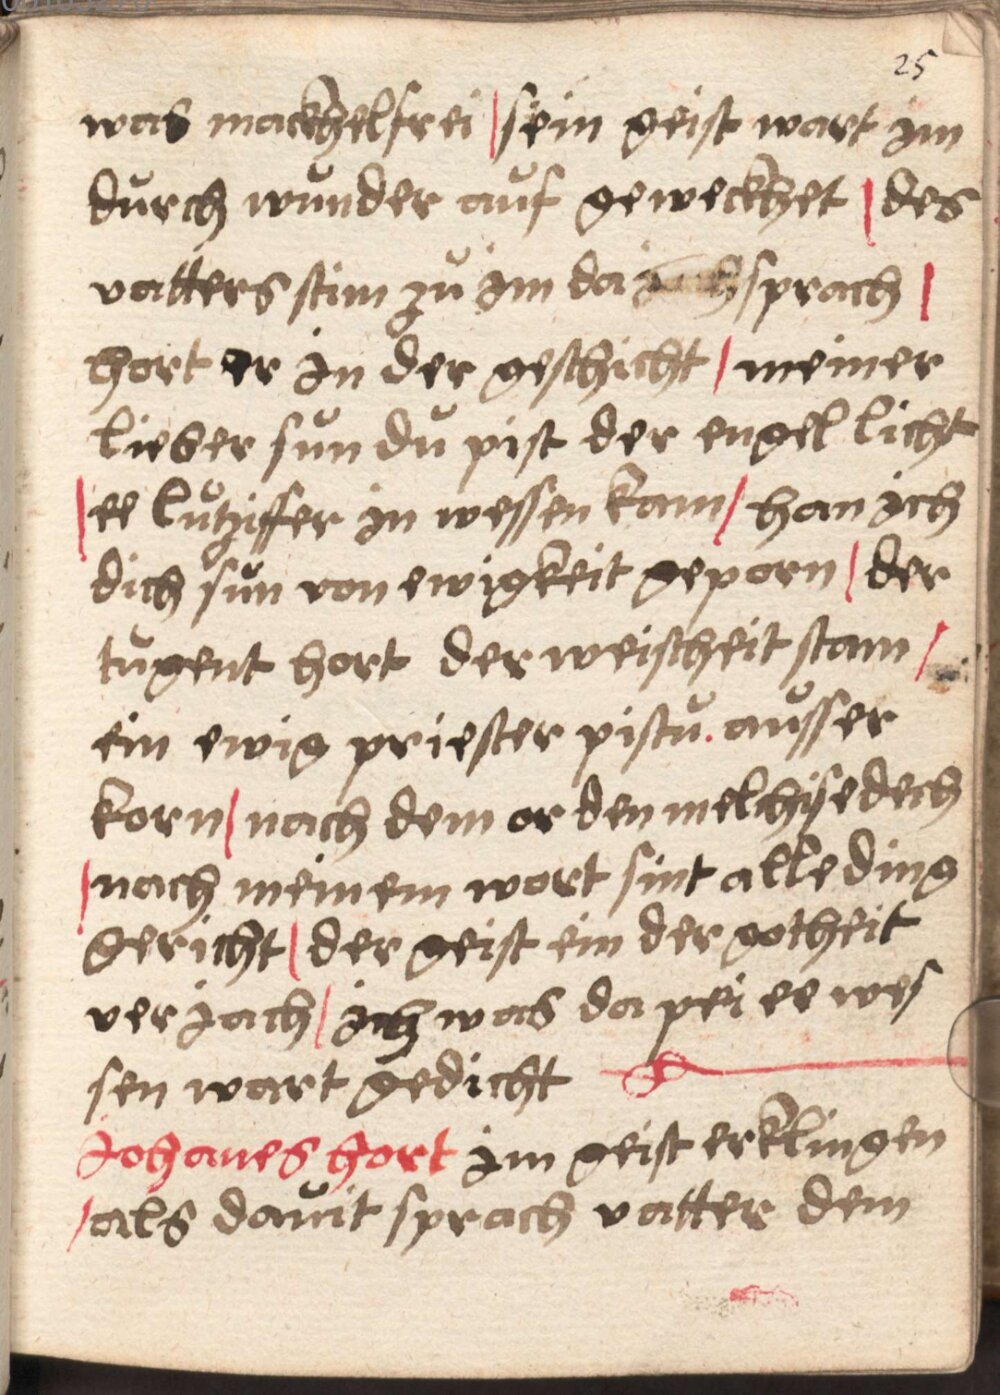 25
was mackhelfrei | sein geist wart im
durch wunder auf geweckhet | des
vatters stim zu im da sprach |
hort er in der geschicht | meiner
lieber sun du pist der engel licht
| ee lutziffer in wessen kam | han ich
dich sun von ewigkeit geporn | der
tugent hort der weischeit stam |
ein ewig priester pistu . ausser
korn | nach dem orden melchisedech
| nach meinem wort sint alle ding
gericht | der geist ein der gotheit
ver jach | ich was da pei ee wes
sen wart gedicht
Johanes hort im geist erklingen
| als dauit sprach vatter dem